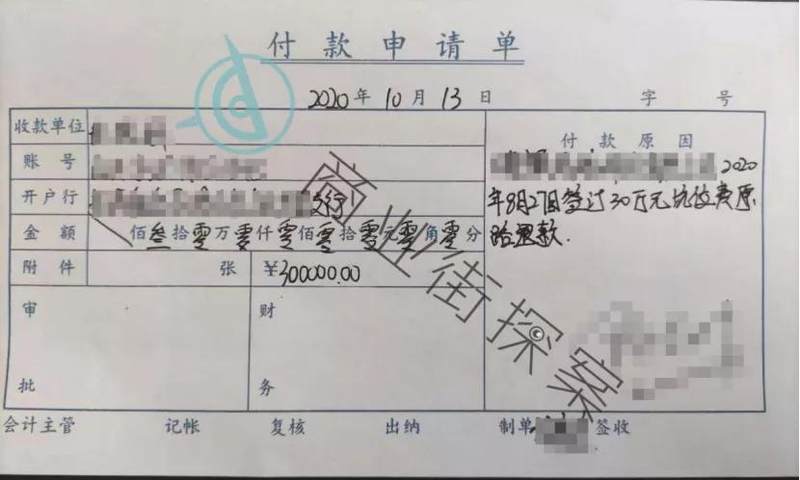 付款申请单
2020年10月13日 字 号
收款单位
付款原因
账号
2020
开户行 支行
年8月27日签过30万元坑位费原
路退款.
金额 佰叁拾零万零仟零佰零拾零元零角零分
附件 张 ¥300000.00
审批
财务
会计主管 记帐 复核 出纳 制单 签收
商业街探案